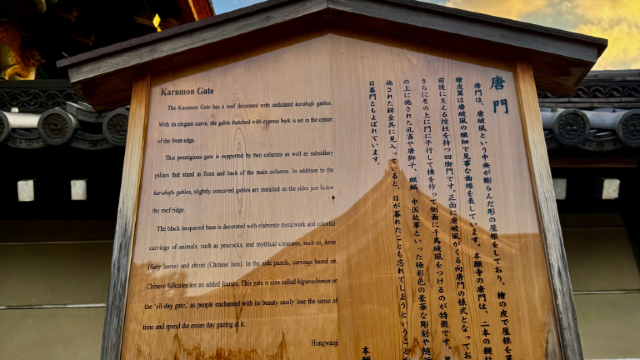 Karamon Gate
The Karamon Gate has a roof decorated with undulated karahafu gables.
With its elegant curve, the gable thatched with cypress bark is set in the center
of the front edge.
This prestigious gate is supported by two columns as well as subsidiary
pillars that stand in front and back of the main columns. In addition to the
karahafu gables, slightly concaved gables are installed on the sides just below
the roof ridge.
The black lacquered base is decorated with elaborate metalwork and colorful
carvings of animals, such as peacocks, and mythical creatures, such as, kirin
horse) and shishi (Chinese lion). In the side panels, carvings based on
Chinese folktales are an added feature. This gate is also called higurashimon or
the 'all day gate,' as people enchanted with its beauty easily lose the sense of
time and spend the entire day gazing at it.
Hongwanji
唐門
唐門は、唐破風という中央が膨らんだ形の屋根をしており、檜の皮で屋根を
檜皮葺は唐破風の繊細で見事な曲線を表しています。本願寺の唐門は、二本の親柱
前後に支える控柱を持つ四脚門です。正面に唐破風がくる向唐門の様式となってお
さらにその上に門に平行して棟を作って側面に千鳥破風をつけるのが特徴です。
の上に施された孔雀や唐獅子、麒麟、中国故事といった極彩色の豪華な彫刻や
施された錺金具に見入っていると、日が暮れたことも忘れてしまうということ
日暮門ともよばれています。
本